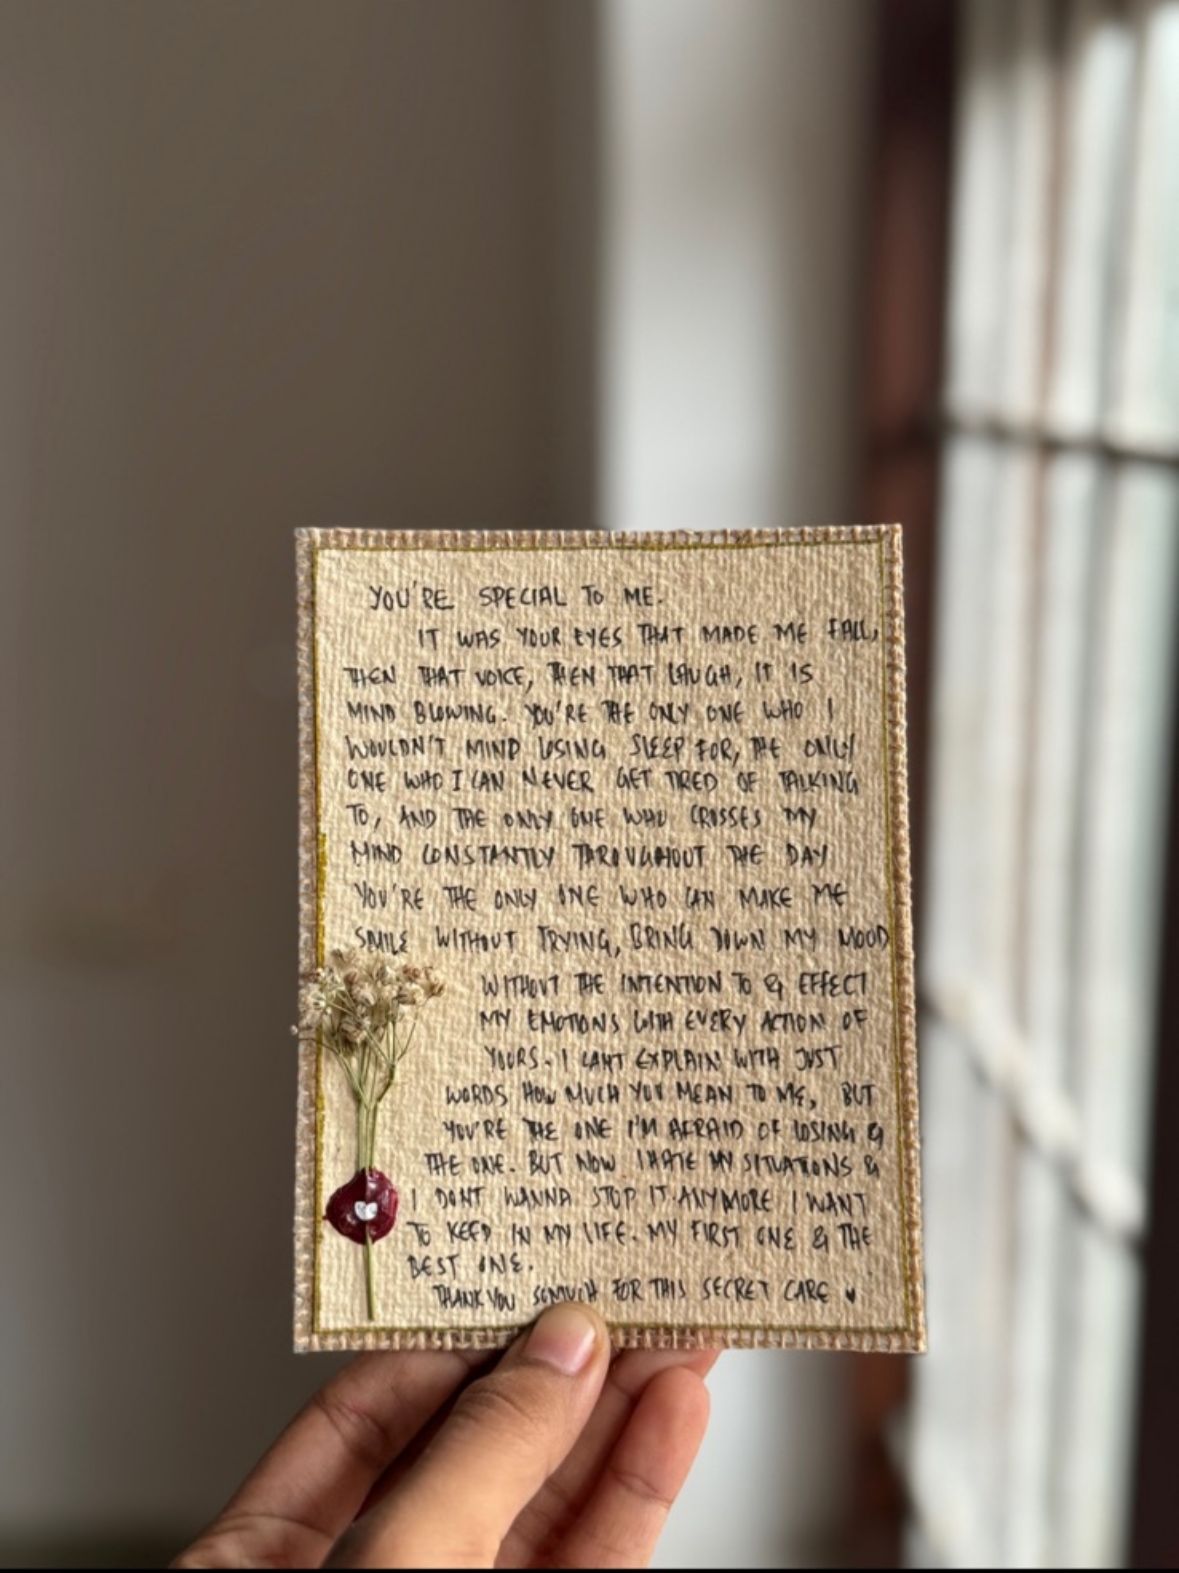 YOU'RE SPECIAL TO ME.
IT WAS YOUR EYES THAT MADE ME FALL,
THEN THAT VOICE, THEN THAT LAUGH, IT IS
MIND BLOWING. YOU'RE THE ONLY ONE WHO I
WOULDN'T MIND LOSING SLEEP FOR, THE ONLY
ONE WHO I CAN NEVER GET TIRED OF TALKING
TO, AND THE ONLY ONE WHO CROSSES MY
MIND CONSTANTLY THROUGHOUT THE DAY
YOU'RE THE ONLY ONE WHO CAN MAKE ME
SMILE WITHOUT TRYING, BRING DOWN MY MOOD
WITHOUT THE INTENTION TO & EFFECT
MY EMOTIONS WITH EVERY ACTION OF
YOURS. I CANT EXPLAIN WITH JUST
WORDS HOW MUCH YOU MEAN TO ME, BUT
YOU'RE THE ONE I'M AFRAID OF LOSING &
THE ONE. BUT NOW I HATE MY SITUATIONS &
I DONT WANNA STOP IT. ANYMORE I WANT
TO KEEP IN MY LIFE. MY FIRST ONE & THE
BEST ONE.
THANK YOU SOMUCH FOR THIS SECRET CARE ♥